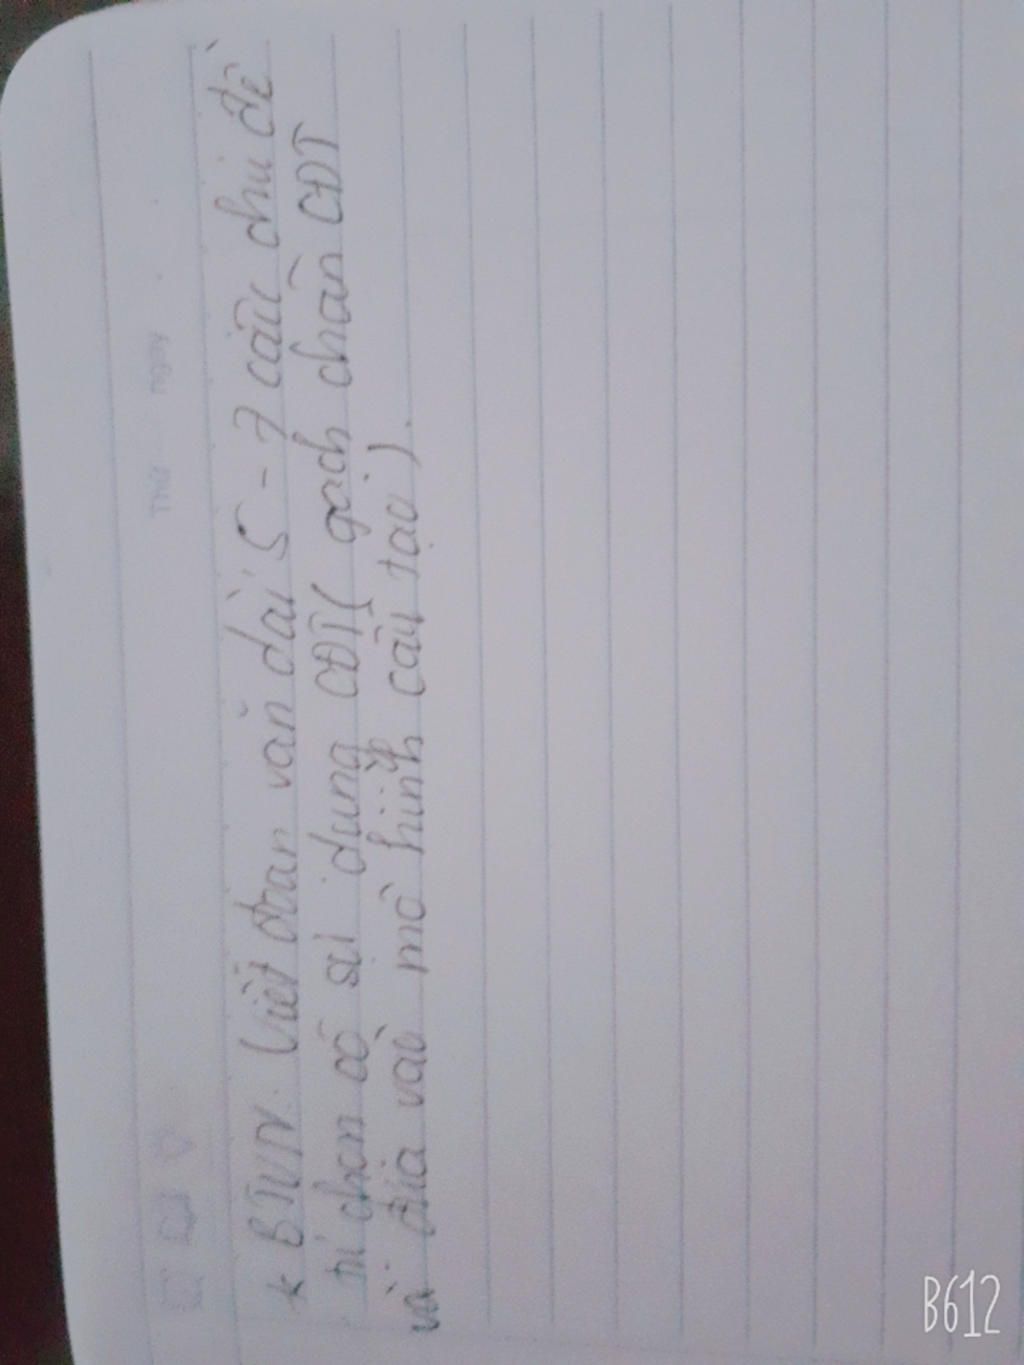 Thứ ngày
* BTVN: Viết đoạn văn dài 5 - 7 câu chủ đề
tự chọn có sử dụng CĐT ( gạch chân CĐT
và đưa vào mô hình cấu tạo ).
B612